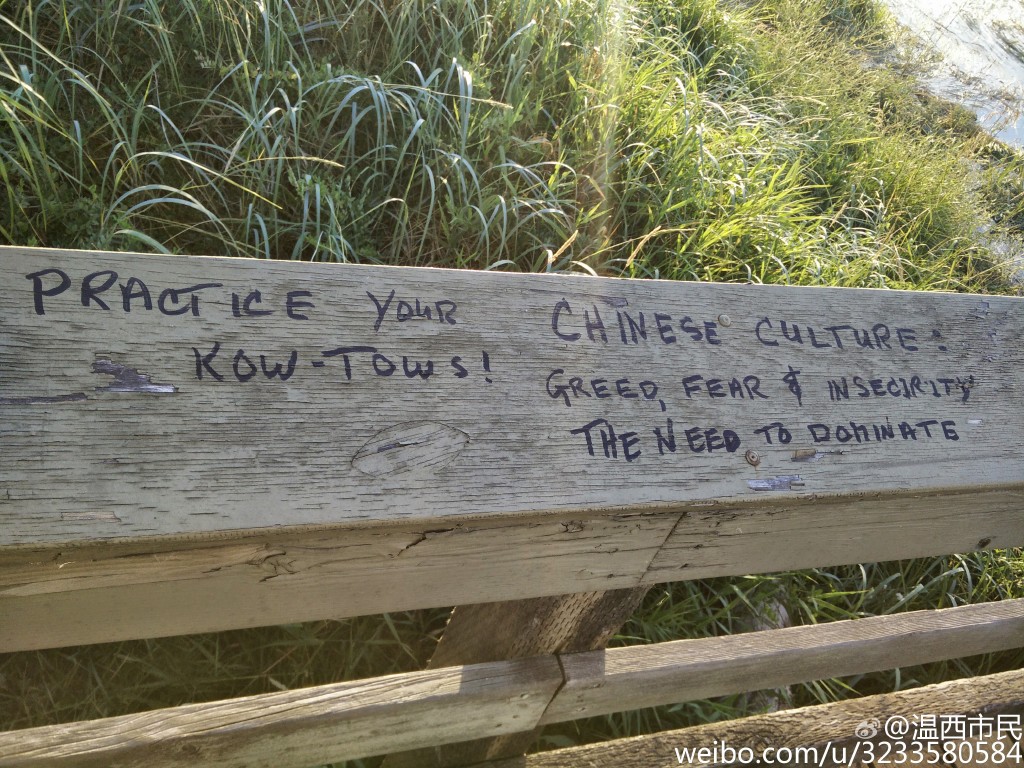 PRACTICE YOUR
KOW-TOWS!
CHINESE CULTURE:
GREED, FEAR & INSECIRITY
THE NEED TO DOMINATE
@温西市民
weibo.com/u/3233580584